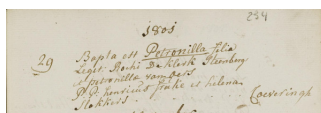 254
1801
29 Bapta est Petronilla filia
Legit Rochi De Klerk Sternberg
et petronilla romkers
P.P. henricus franke et helena
Stokkers Coeveringh